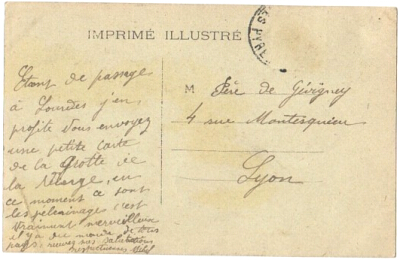 IMPRIMÉ ILLUSTRÉ
ES PYR
Etant de passage
à Lourdes j'en
profite vous envoyez
une petite carte
de la Grotte de
la Vierge, en
ce moment ce sont
les pélerinages c'est
vraiment merveilleux
il y a du monde de tous
pays. recevez nos salutations
respectueuses
M Père de Gévigney
4 rue Montesquieu
Lyon